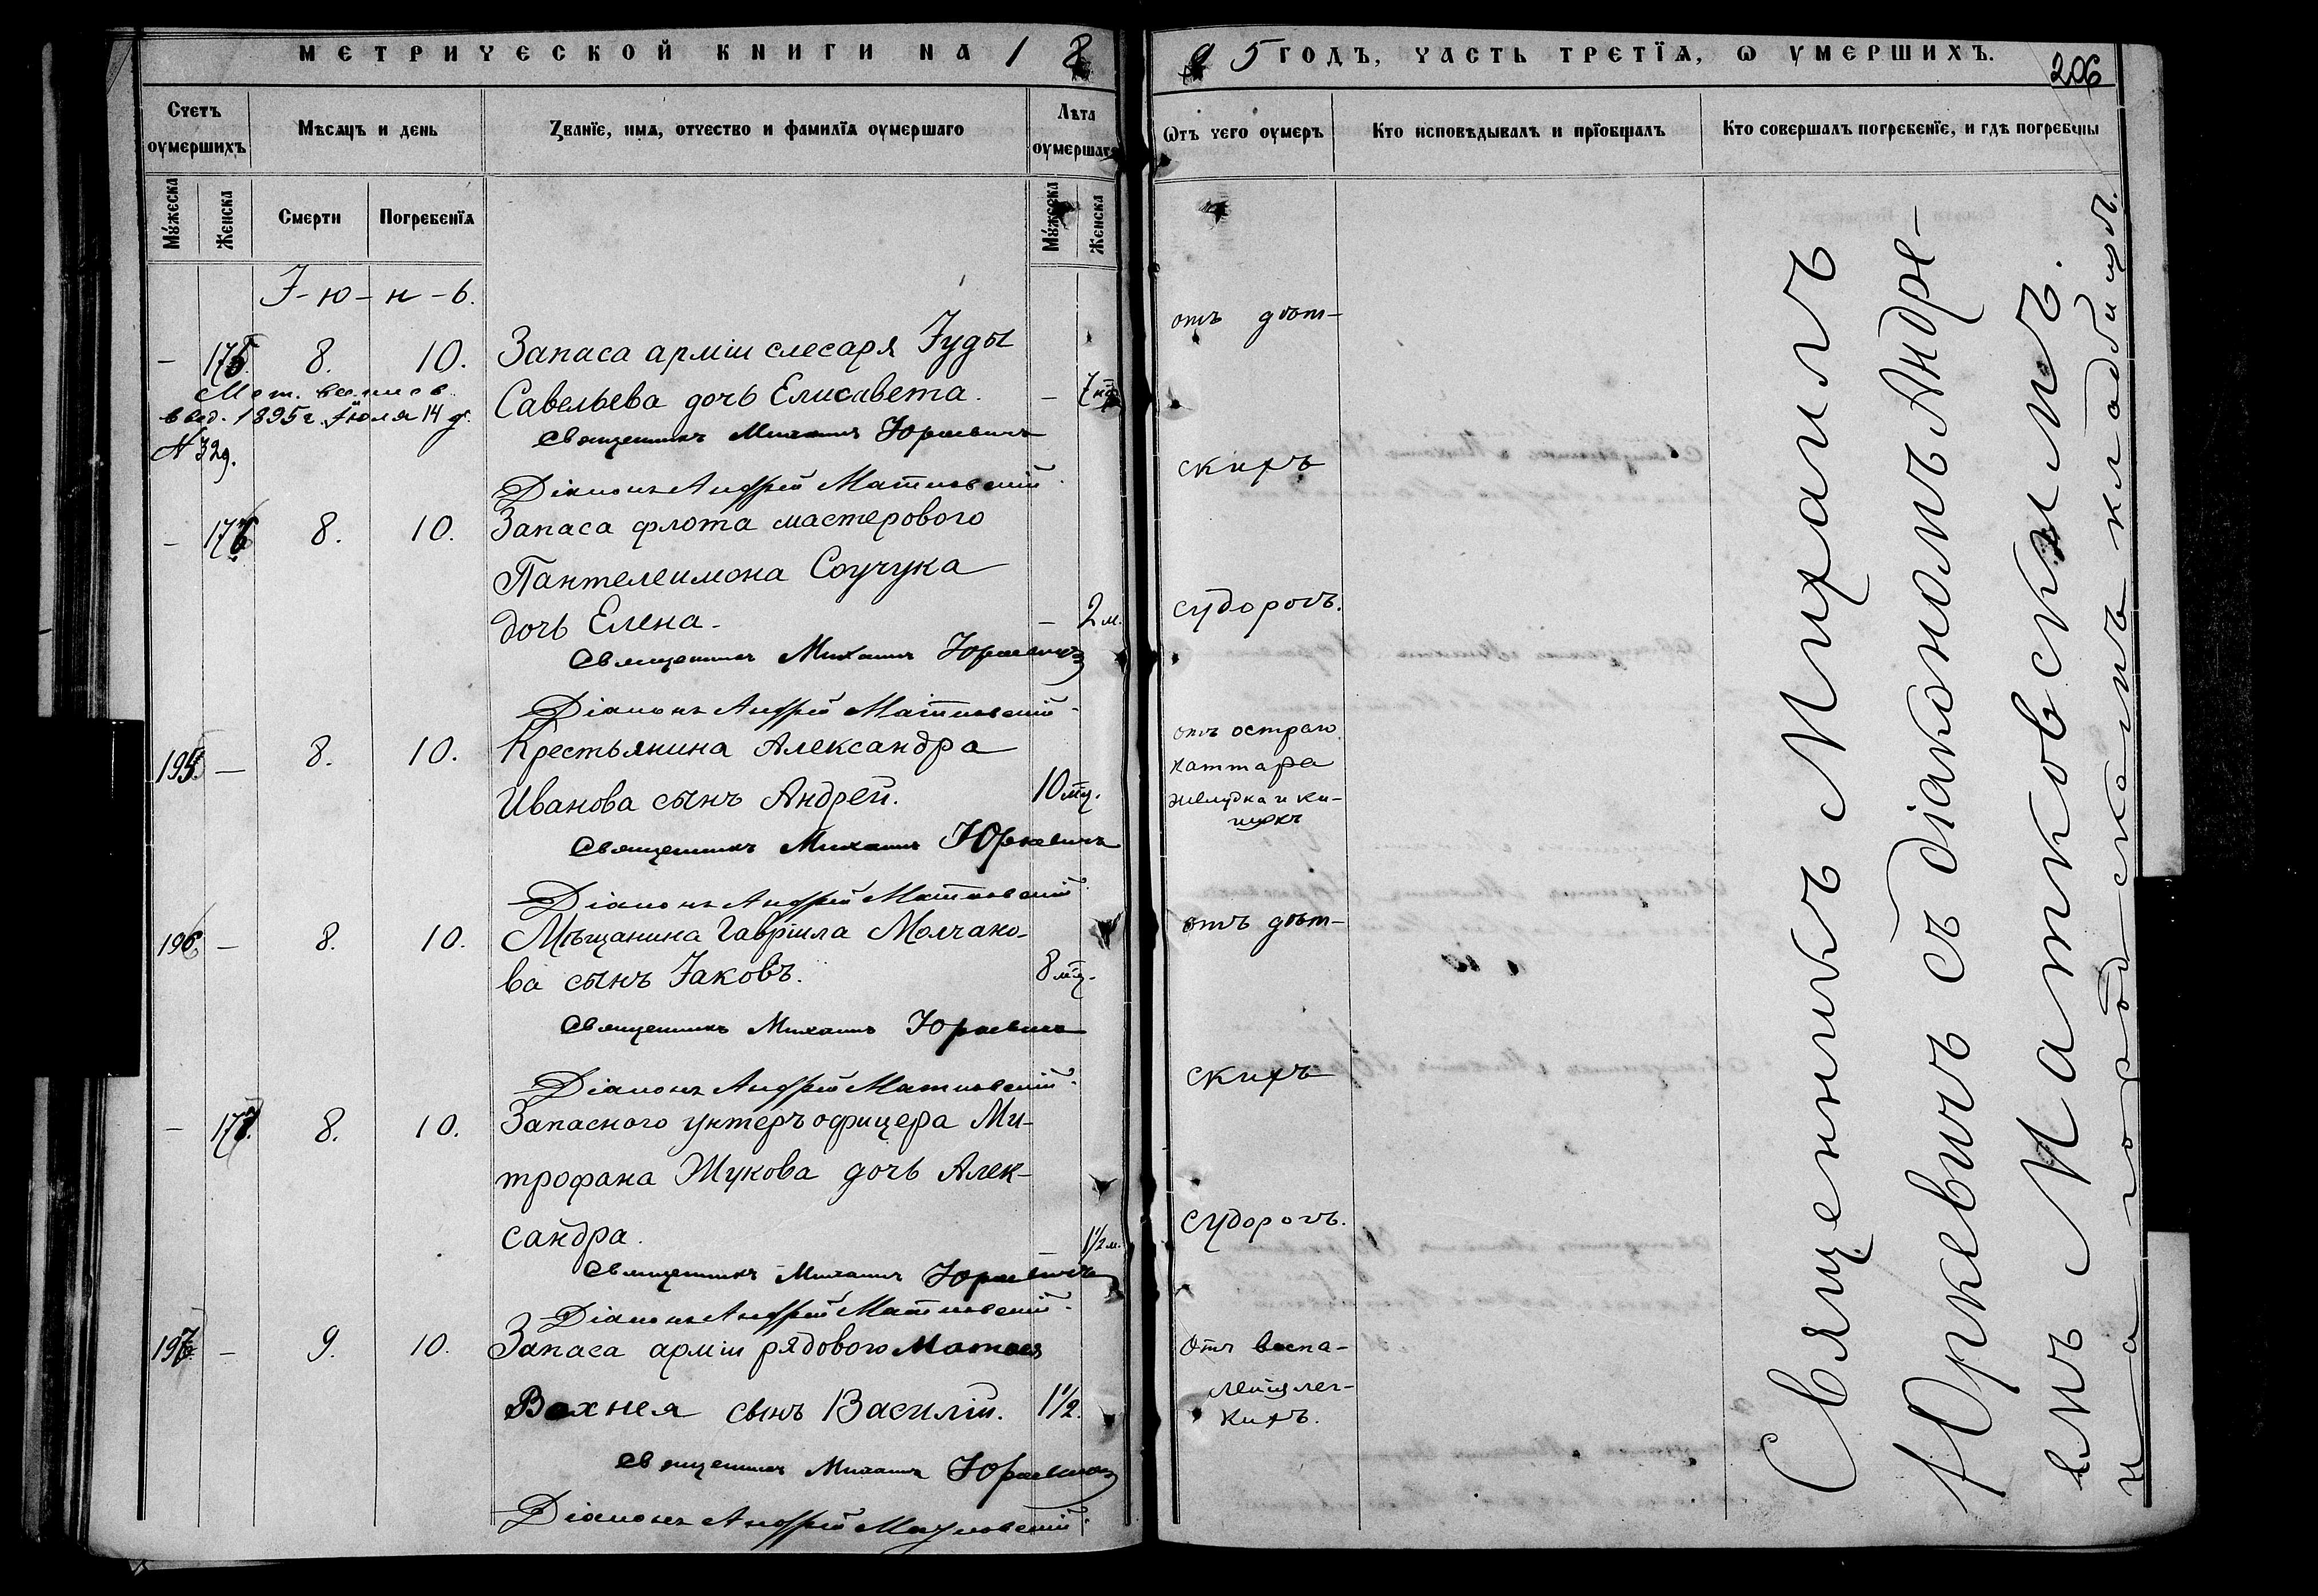 МЕТРИЧЕСКОЙ КНИГИ НА 1895 ГОДЪ, ЧАСТЬ ТРЕТІЯ, Ѡ УМЕРШИХЪ.
206
Счетъ оумершихъ
Мѣсяцъ и день
Званіе, имя, отчество и фамилія оумершаго
Лѣта оумершаго
Ѿтъ чего оумеръ
Кто исповѣдывалъ и пріобщалъ
Кто совершалъ погребеніе, и гдѣ погребены
Мужеска
Женска
Смерти
Погребенїя
Мужеска
Женска
І-ю-н-ь.
— 175. 8. 10. Запаса арміи слесаря Іуды
Савельева дочь Елисавета. — 7 нд.
отъ дѣт-
скихъ
1895 г. Іюля 14 д.
N 329.
Священникъ Михаилъ Юркевичъ
Діаконъ Андрей Матковскій
— 176 8. 10. Запаса флота мастерового
Пантелеимона Соучука
дочь Елена. — 2 м.
судорогъ.
Священникъ Михаилъ Юркевичъ
Діаконъ Андрей Матковскій
195. — 8. 10. Крестьянина Александра
Иванова сынъ Андрей. 10 мц.
отъ остраго
каттара
желудка и ки-
шокъ
Священникъ Михаилъ Юркевичъ
Діаконъ Андрей Матковскій
196. — 8. 10. Мѣщанина Гавріила Молчано-
ва сынъ Іаковъ. 8 мц.
отъ дѣт-
скихъ
Священникъ Михаилъ Юркевичъ
Діаконъ Андрей Матковскій
— 177. 8. 10. Запасного унтеръ офицера Ми-
трофана Жукова дочь Алек-
сандра. — 1½ м.
судорогъ.
Священникъ Михаилъ Юркевичъ
Діаконъ Андрей Матковскій
197. — 9. 10. Запаса арміи рядового Матвея
Вахнея сынъ Василій. 1½.
Отъ воспа-
ленія лег-
кихъ.
Священникъ Михаилъ Юркевичъ
Діаконъ Андрей Матковскій
Священникъ Михаилъ
Юркевичъ съ діакономъ Андре-
емъ Матковскимъ.
на городскомъ кладбищѣ.